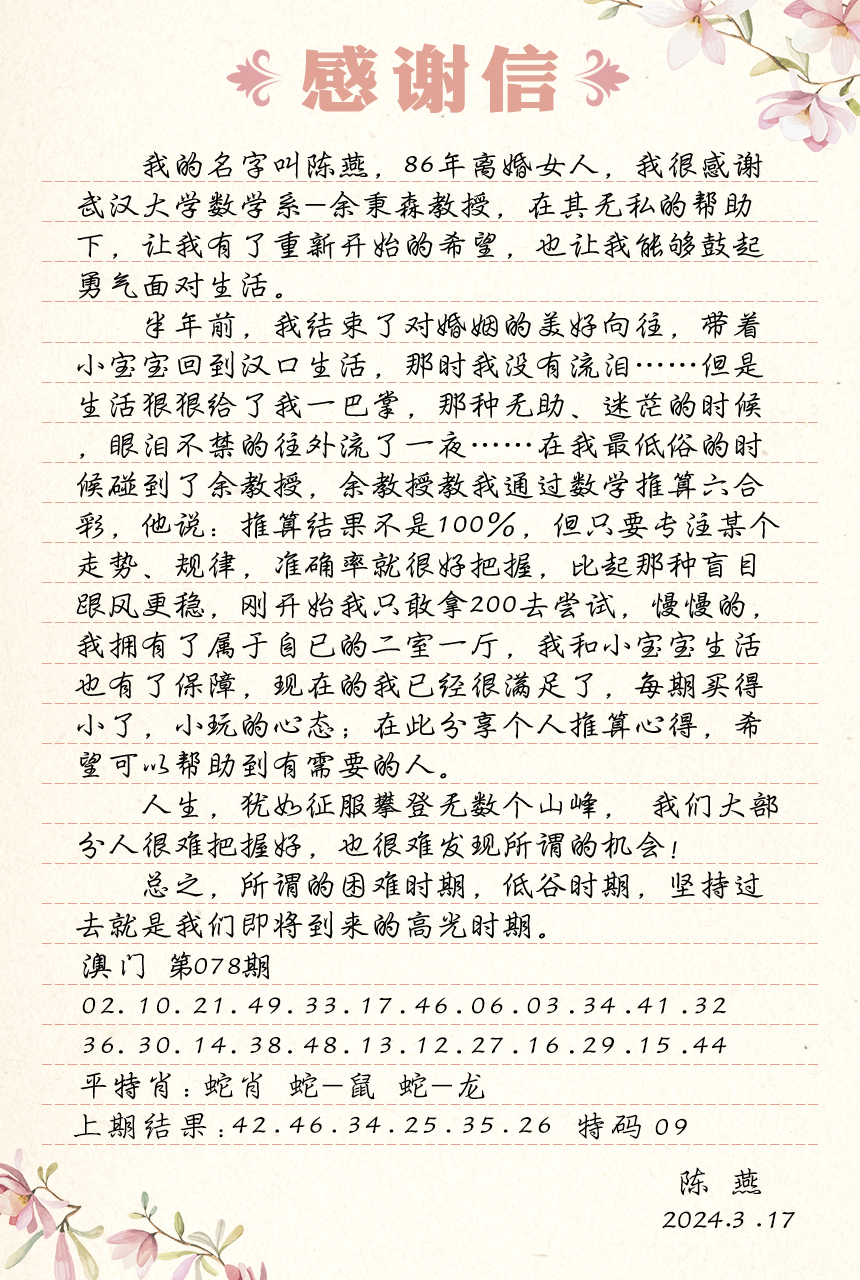 感谢信
我的名字叫陈燕，86年离婚女人，我很感谢
武汉大学数学系—余秉森教授，在其无私的帮助
下，让我有了重新开始的希望，也让我能够鼓起
勇气面对生活。
半年前，我结束了对婚姻的美好向往，带着
小宝宝回到汉口生活，那时我没有流泪……但是
生活狠狠给了我一巴掌，那种无助、迷茫的时候
，眼泪不禁的往外流了一夜……在我最低俗的时
候碰到了余教授，余教授教我通过数学推算六合
彩，他说：推算结果不是100%，但只要专注某个
走势、规律，准确率就很好把握，比起那种盲目
跟风更稳，刚开始我只敢拿200去尝试，慢慢的，
我拥有了属于自已的二室一厅，我和小宝宝生活
也有了保障，现在的我已经很满足了，每期买得
小了，小玩的心态；在此分享个人推算心得，希
望可以帮助到有需要的人。
人生，犹如征服攀登无数个山峰， 我们大部
分人很难把握好，也很难发现所谓的机会！
总之，所谓的困难时期，低谷时期，坚持过
去就是我们即将到来的高光时期。
澳门 第078期
02.10.21.49.33.17.46.06.03.34.41.32
36.30.14.38.48.13.12.27.16.29.15.44
平特肖：蛇肖 蛇—鼠 蛇—龙
上期结果：42.46.34.25.35.26 特码 09
陈 燕
2024.3.17